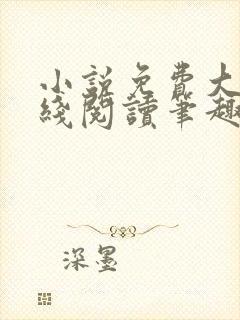 小説免費大
綫閱讀筆趣
深墨